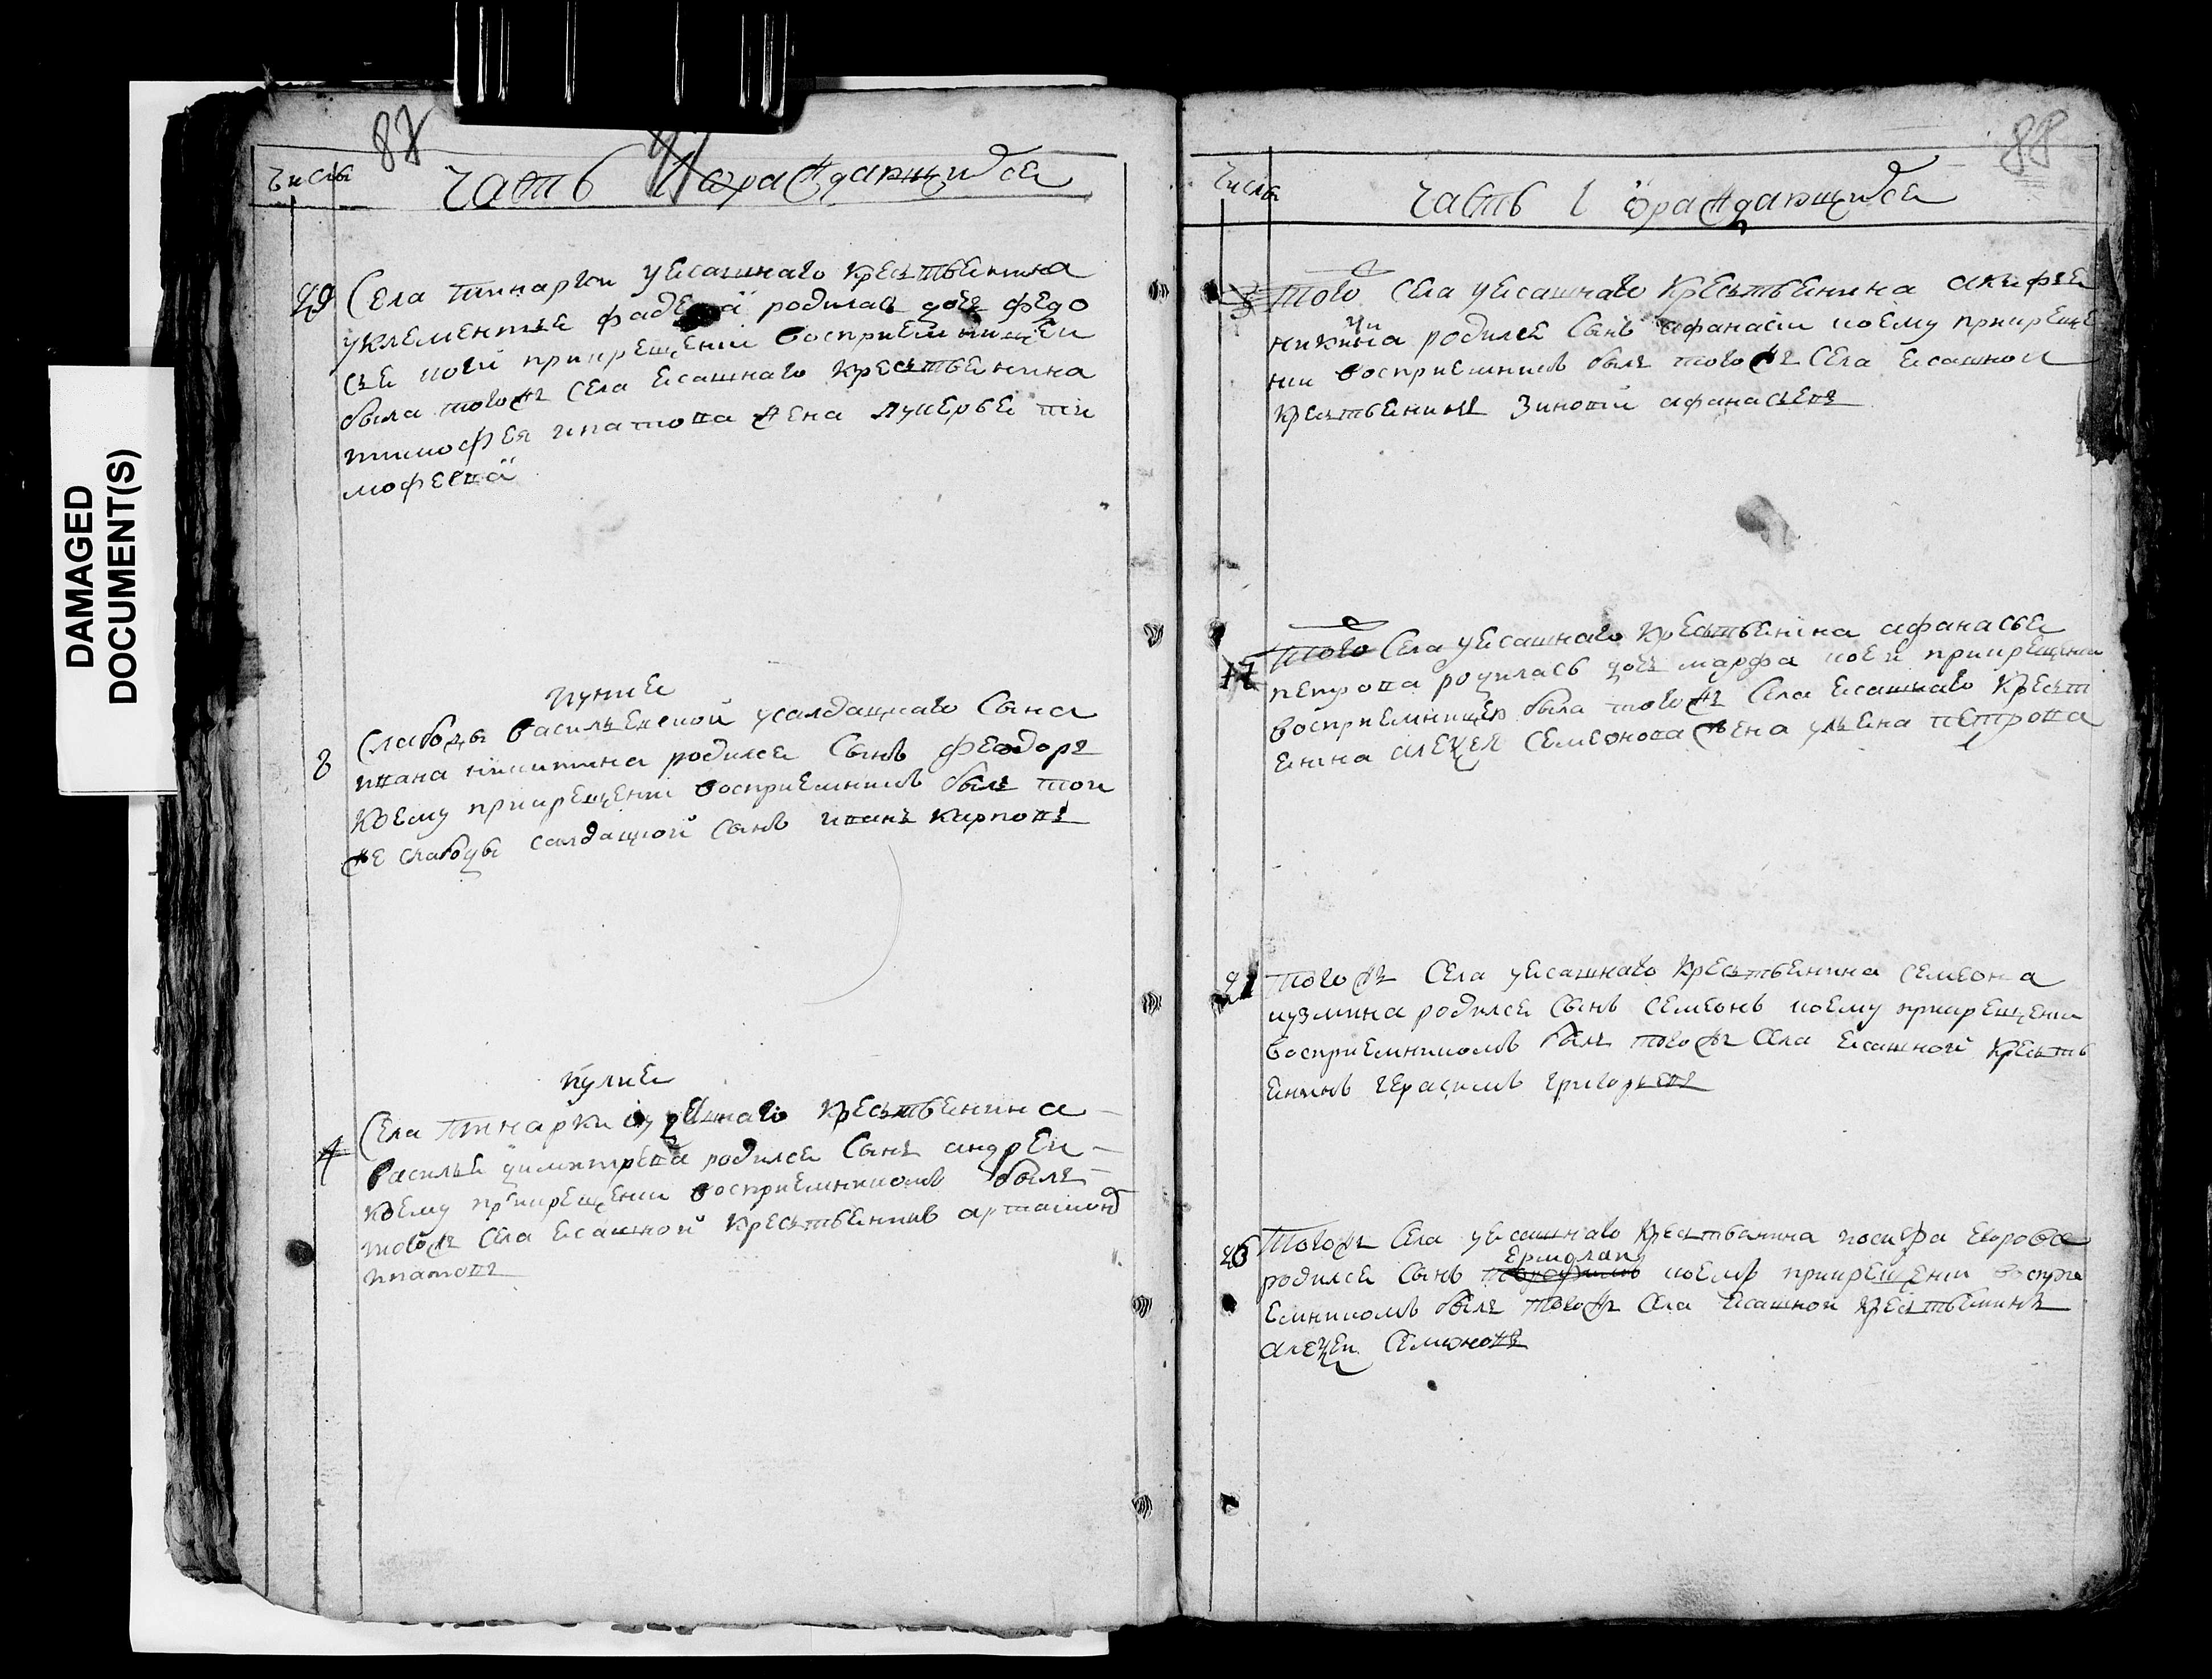 DAMAGED
DOCUMENT(S)
87
числа
часть 1 ѡраждающихся
29 Села шинарки уясашнаго крестьенина
уклементье фаде родилась дочь федо
сье коей прикрещении восприемницей
была тогожъ села ясашнаго крестьенина
тимофея ипатова жена лукерье ти
мофеева
июние
8 Слабоды васильевской усалдацкаго сына
ивана никитина родился сынъ феодоръ
коему прикрещении восприемникъ былъ той
же слабоды салдацкой сынъ иванъ карповъ
июлие
4 Села шинарки крестьенина
василье димитрева родился сынъ андреи
коему прикрещении восприемникомъ былъ
тогожъ села ясашной крестьенинъ артамонъ
ипатовъ
88
числа
часть 1 ѡраждающихся
3 того села уясашнаго крестьенина акифье
никина родился сынъ афанасии коему прикреще
нии восприемникъ былъ тогожъ села ясашнои
крестьенинъ зиновии афанасьевъ
17 того села уясашнаго крестьенина афанасье
петрова родилась дочь марфа коей прикрещении
восприемницею была тогожъ села ясашнаго крестп
енина алеѯея семеонова жена ульена петрова
21 тогожъ села уясашнаго крестьенина семеона
кузмина родился сынъ семеонъ коему прикрещении
восприемникомъ былъ тогожъ села ясашной крестьь
енинъ герасимъ григорьевъ
26 тогожъ села уясашнаго крестьенина иосифа егорова
ермолаи
родился сынъ коему прикрещении воспри
емникомъ былъ тогожъ села ясашнои крестьенинъ
алеѯеи семионовъ